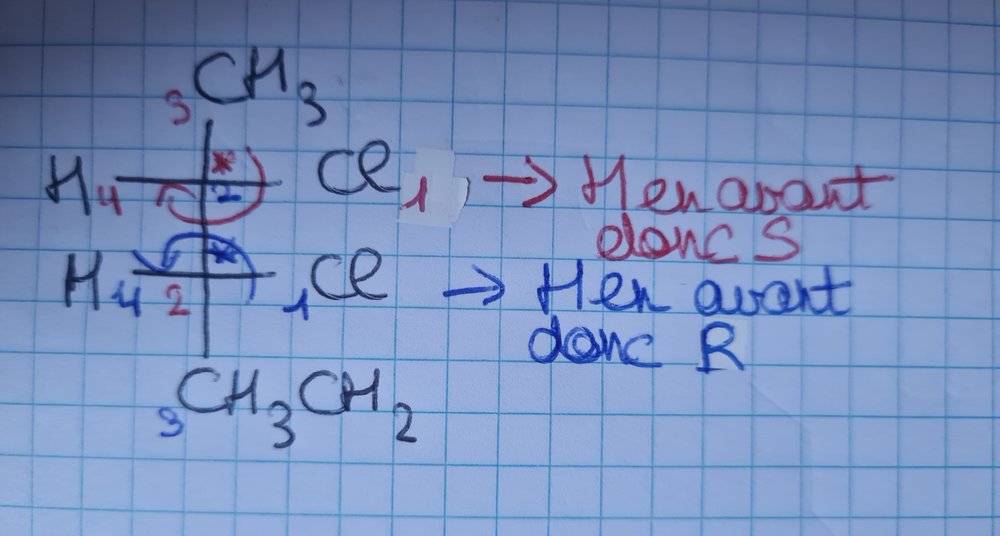 3 CH3
H4 * Cl 1 → H en avant
2
donc S
H4 2 * 1 Cl → H en avant
donc R
3 CH3CH2